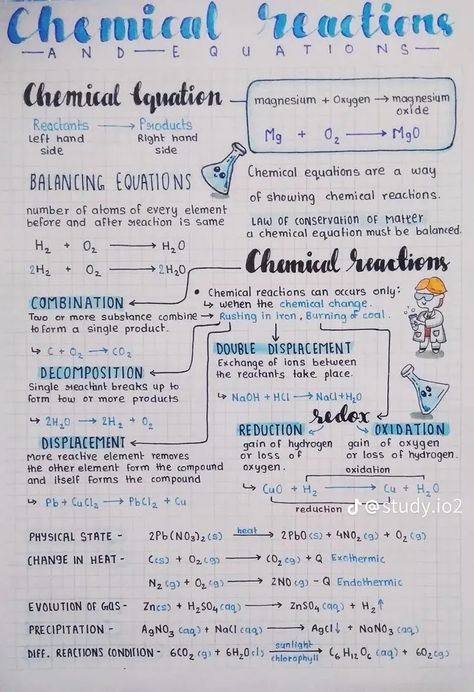 Chemical reactions
AND EQUATIONS
Chemical Equation
Reactants → Products
Left hand side
Right hand side
magnesium + Oxygen → magnesium oxide
Mg + O₂ → MgO
BALANCING EQUATIONS
number of atoms of every element
before and after reaction is same
H₂ + O₂ → H₂O
2H₂ + O₂ → 2H₂O
Chemical equations are a way
of showing chemical reactions.
LAW OF CONSERVATION OF MATTER
a chemical equation must be balanced.
Chemical reactions
• Chemical reactions can occurs only:
↳ wehen the chemical change.
↳ Rusting in iron, Burning of coal.
COMBINATION
Two or more substance combine
to form a single product.
↳ C + O₂ → CO₂
DECOMPOSITION
Single reactant breaks up to
form tow or more products
↳ 2H₂O → 2H₂ + O₂
DISPLACEMENT
More reactive element removes
the other element form the compound
and itself forms the compound
↳ Pb + CuCl₂ → PbCl₂ + Cu
DOUBLE DISPLACEMENT
Exchange of ions between
the reactants take place.
↳ NaOH + HCl → NaCl + H₂O
redox
REDUCTION
gain of hydrogen
or loss of
oxygen.
OXIDATION
gain of oxygen
or loss of hydrogen.
oxidation
↳ CuO + H₂ → Cu + H₂O
reduction
@study.io2
PHYSICAL STATE - 2Pb(NO₃)₂(s) heat → 2PbO(s) + 4NO₂(g) + O₂(g)
CHANGE IN HEAT - C(s) + O₂(g) → CO₂(g) + Q Exothermic
N₂(g) + O₂(g) → 2NO(g) - Q Endothermic
EVOLUTION OF GAS - Zn(s) + H₂SO₄(aq) → ZnSO₄(aq) + H₂↑
PRECIPITATION - AgNO₃(aq) + NaCl(aq) → AgCl↓ + NaNO₃(aq)
DIFF. REACTIONS CONDITION - 6CO₂(g) + 6H₂O(l) sunlight → chlorophyll C₆H₁₂O₆(aq) + 6O₂(g)